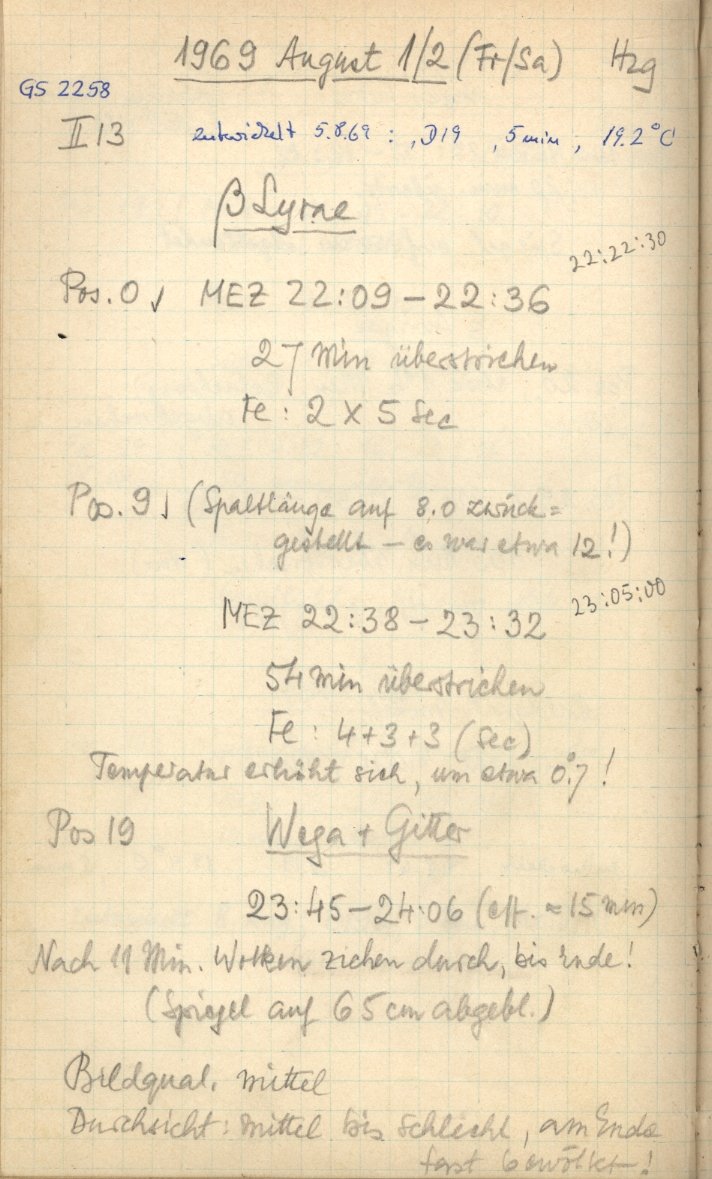 1969 August 1/2 (Fr/Sa) Hzg
GS 2258
II 13 entwickelt 5.8.69 : , D19 , 5 min , 19.2°C
β Lyrae
22:22:30
Pos. 0 ↓ MEZ 22:09 – 22:36
27 Min überstrichen
Fe : 2 x 5 Sec
Pos. 9 ↓ (Spaltlänge auf 8.0 zurück=
gestellt – es war etwa 12!)
23:05:00
MEZ 22:38 – 23:32
54 Min überstrichen
Fe : 4+3+3 (Sec)
Temperatur erhöht sich, um etwa 0°.7 !
Pos 19 Wega + Gitter
23:45 – 24:06 (eff. ≈ 15 min)
Nach 11 Min. Wolken ziehen durch, bis Ende!
(Spiegel auf 65 cm abgebl.)
Bildqual. mittel
Durchsicht: mittel bis schlecht, am Ende
fast bewölkt !